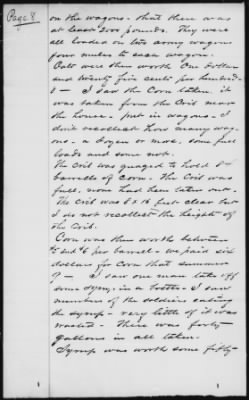 Page 8
on the wagons - that there was
at least 2000 pounds. They were
all loaded on two army wagons
four mules to each wagon.
Oats were then worth One dollar
and twenty five cents per hundred -
8 - I saw the Corn taken. it
was taken from the Crib near
the house - put in wagons - I
don't recollect how many wag-
ons - a dozen or more, some full
loads and some not.
The crib was gauged to hold
barrells of corn. The Crib was
full, none had been taken out.
The Crib was 6 x 16 feet clear but
I do not recollect the height of
the Crib.
Corn was then worth between
$5 and $6 per barrel - we paid six
dollars for Corn that summer
9 - I saw one man take off
some syrup, in a bottle - I saw
numbers of the soldiers eating
the syrup - very little of it was
wasted - There was forty
gallons in all taken.
Syrup was worth some fifty